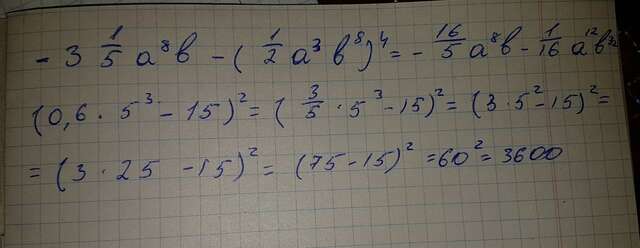 - 3 1/5 a⁸b - (1/2 a³b⁸)⁴ = - 16/5 a⁸b - 1/16 a¹²b³²
(0,6 · 5³ - 15)² = (3/5 · 5³ - 15)² = (3 · 5² - 15)² =
= (3 · 25 - 15)² = (75 - 15)² = 60² = 3600